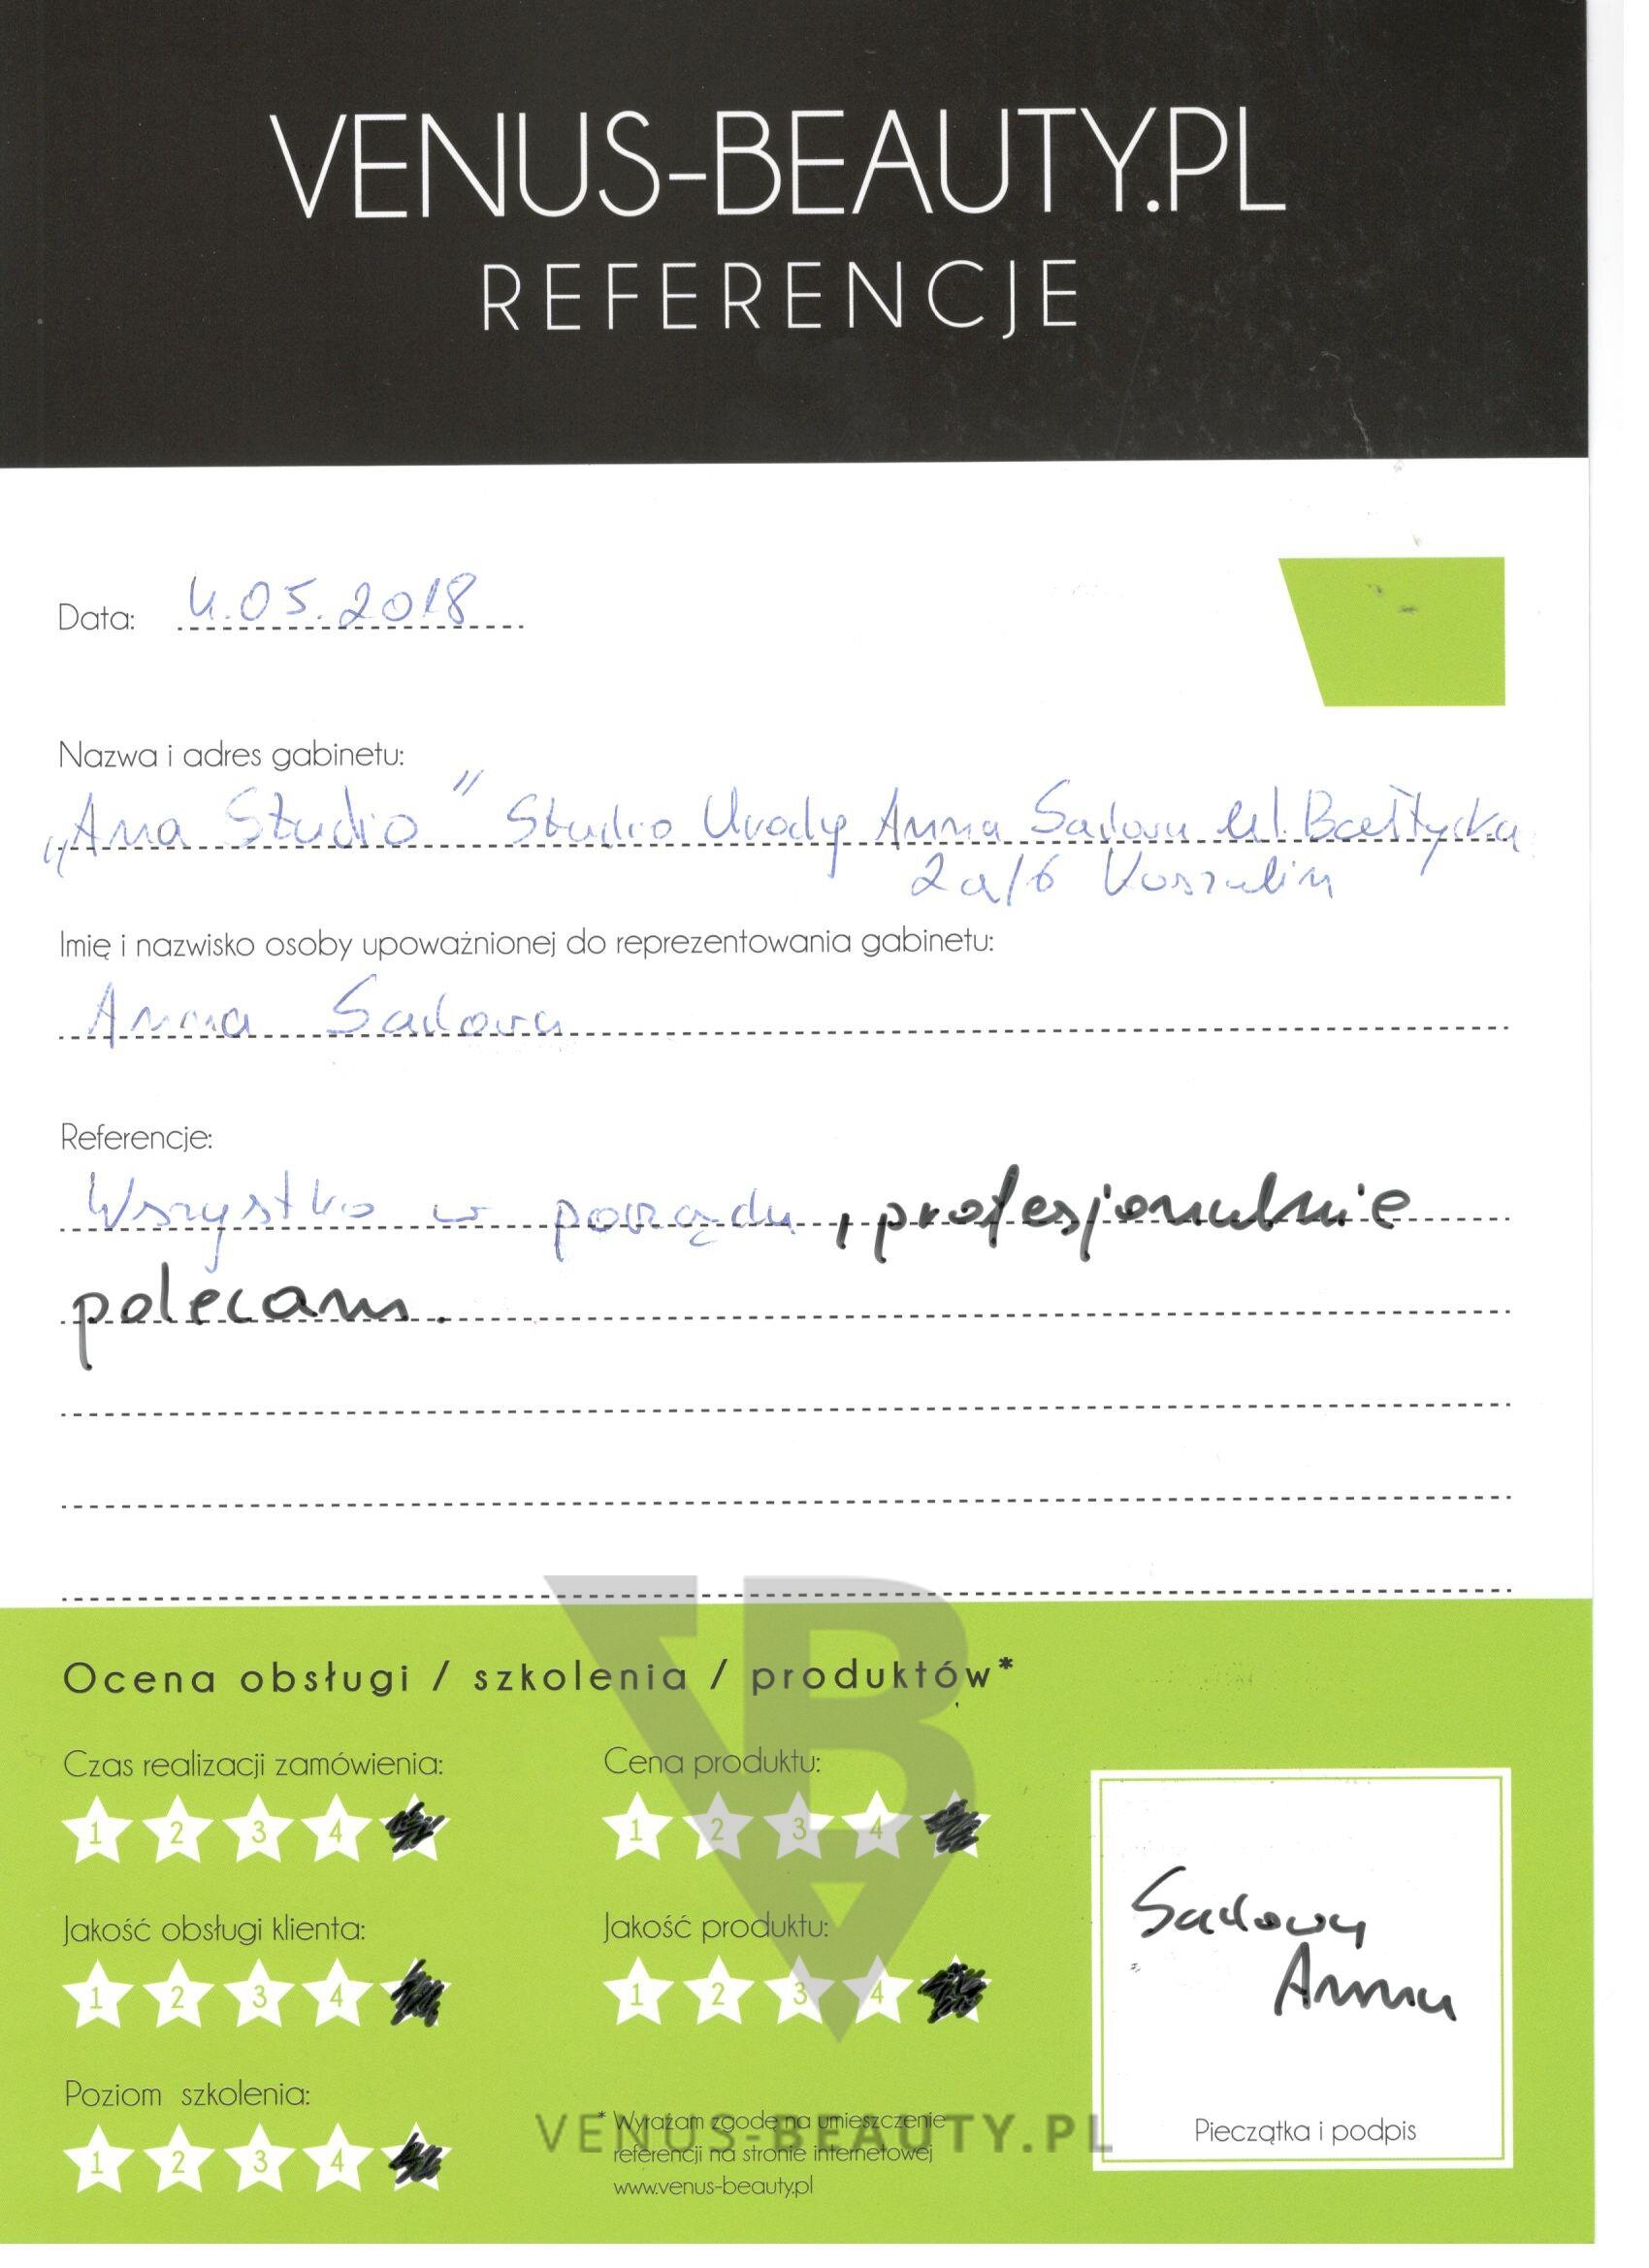 VENUS-BEAUTY.PL
REFERENCJE
Data: 4.05.2018
Nazwa i adres gabinetu:
„Ana Studio" Studio Urody Anna Sadowa ul. Bałtycka
2a/6 Koszalin
Imię i nazwisko osoby upoważnionej do reprezentowania gabinetu:
Anna Sadowa
Referencje:
Wszystko w porządu, profesjonalnie
polecam.
Ocena obsługi / szkolenia / produktów*
Czas realizacji zamówienia:
1 2 3 4
Cena produktu:
1 2 3 4
Jakość obsługi klienta:
1 2 3 4
Jakość produktu:
1 2 3 4
Poziom szkolenia:
1 2 3 4
* Wyrażam zgodę na umieszczenie
referencji na stronie internetowej
www.venus-beauty.pl
VENUS-BEAUTY.PL
Sadowa
Anna
Pieczątka i podpis